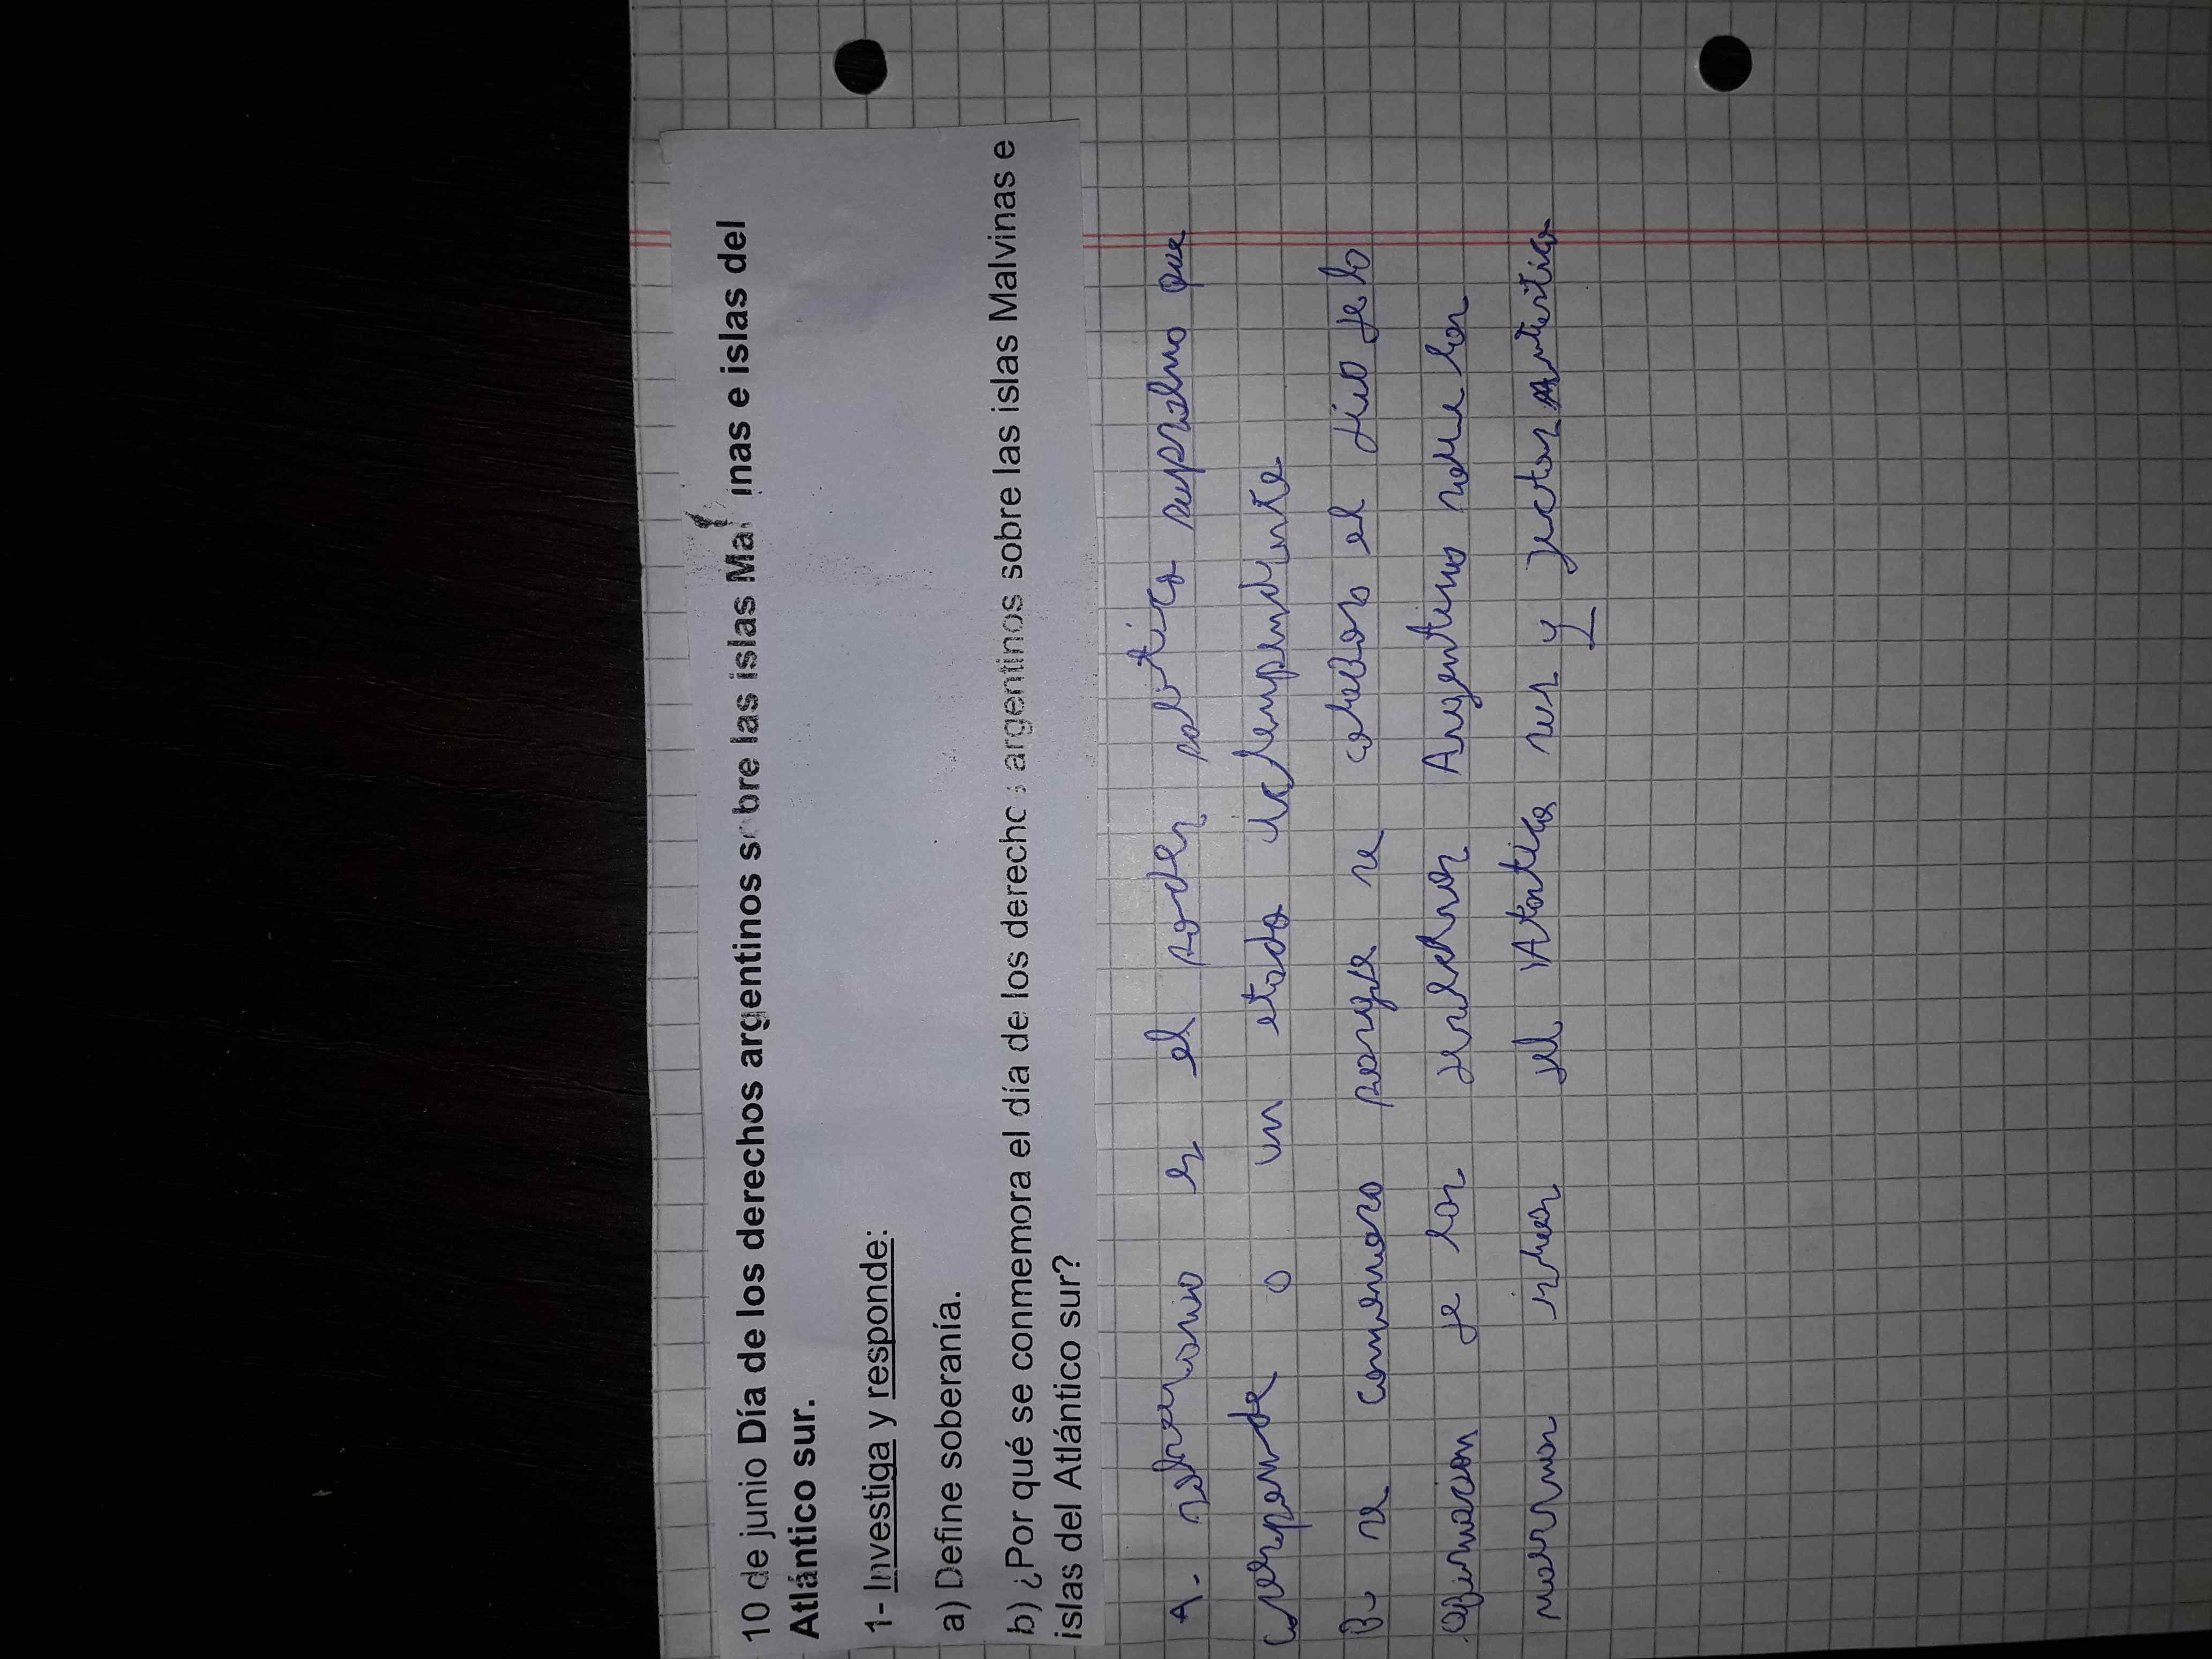 10 de junio Día de los derechos argentinos sobre las islas Mal inas e islas del
Atlántico sur.
1- Investiga y responde:
a) Define soberanía.
b) ¿Por qué se conmemora el día de los derechos argentinos sobre las islas Malvinas e
islas del Atlántico sur?
A- es el poder politico supremo que
o un etado
B- se conmemora porque se celebra el dia de la
afirmacion de los derechos Argentino sobre las
islas del Atlantico sur y sector Antartico